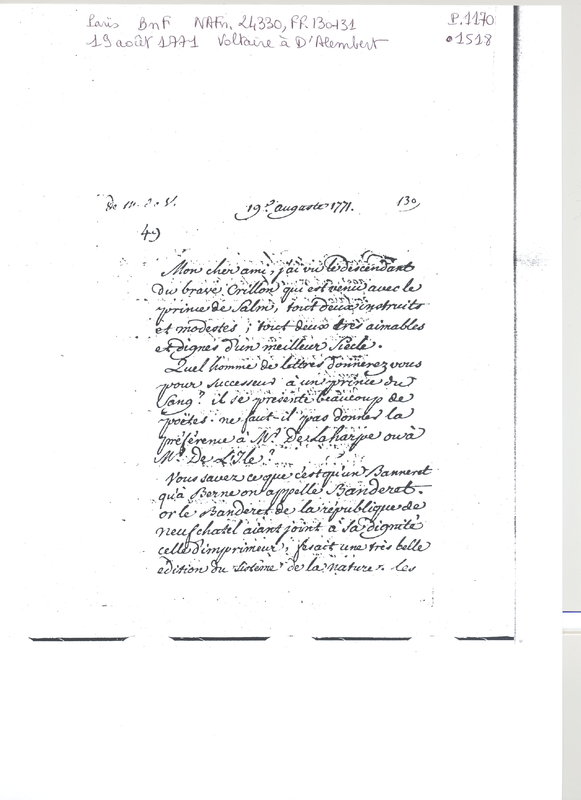 Paris BnF NAFr. 24330, FF. 130-131
P. 1170
19 août 1771 Voltaire à D'Alembert
•1518
De M. de V.
19.e auguste 1771.
130
49
Mon cher ami, j'ai vu le descendant
du brave Crillon qui est venu avec le
prince de Salm, tout deux instruits
et modestes ; tout deux très aimables
et dignes d'un meilleur Siècle.
Quel homme de lettres donnerez vous
pour successeur à un prince du
Sang ? il se présente beaucoup de
poëtes. ne faut-il pas donner la
préférence à Mr. De Laharpe ou à
Mr. De L'Ile ?
Vous savez ce que c'est qu'un Banneret
qu'a Berne on appelle Banderet.
or le Banderet de la république de
neufchatel aiant joint à sa dignité
celle d'imprimeur, fesait une très belle
edition du Sistème de la nature. les